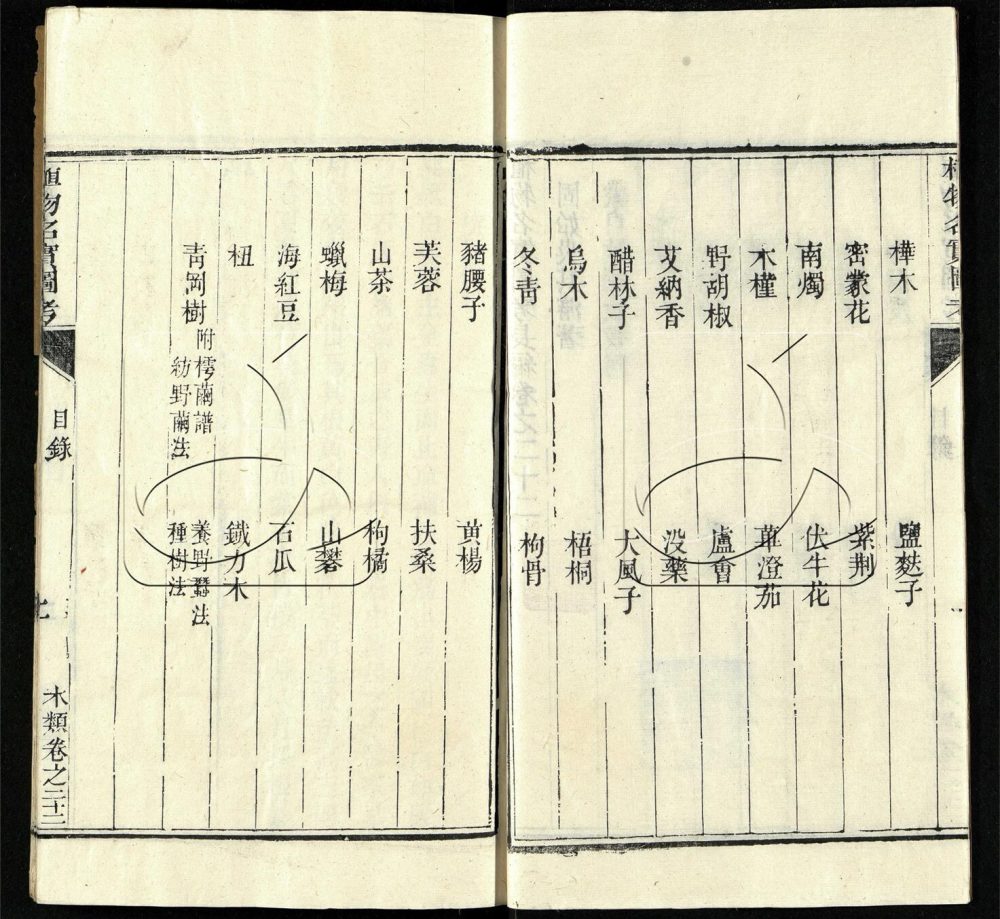 樺木 鹽麩子
密蒙花 紫荆
南燭 伏牛花
木槿
野胡椒 蓽澄茄
艾納香 盧會
醋林子 没藥
烏木 大風子
冬青 梧桐
枸骨
豬腰子 黄楊
芙蓉 扶桑
山茶 枸橘
蠟梅 山礬
海紅豆 石瓜
杻 鐵力木
青岡樹 附樗繭譜 養野蠶法
紡野繭法 種樹法
植物名實圖考
目錄
木類卷之三十二